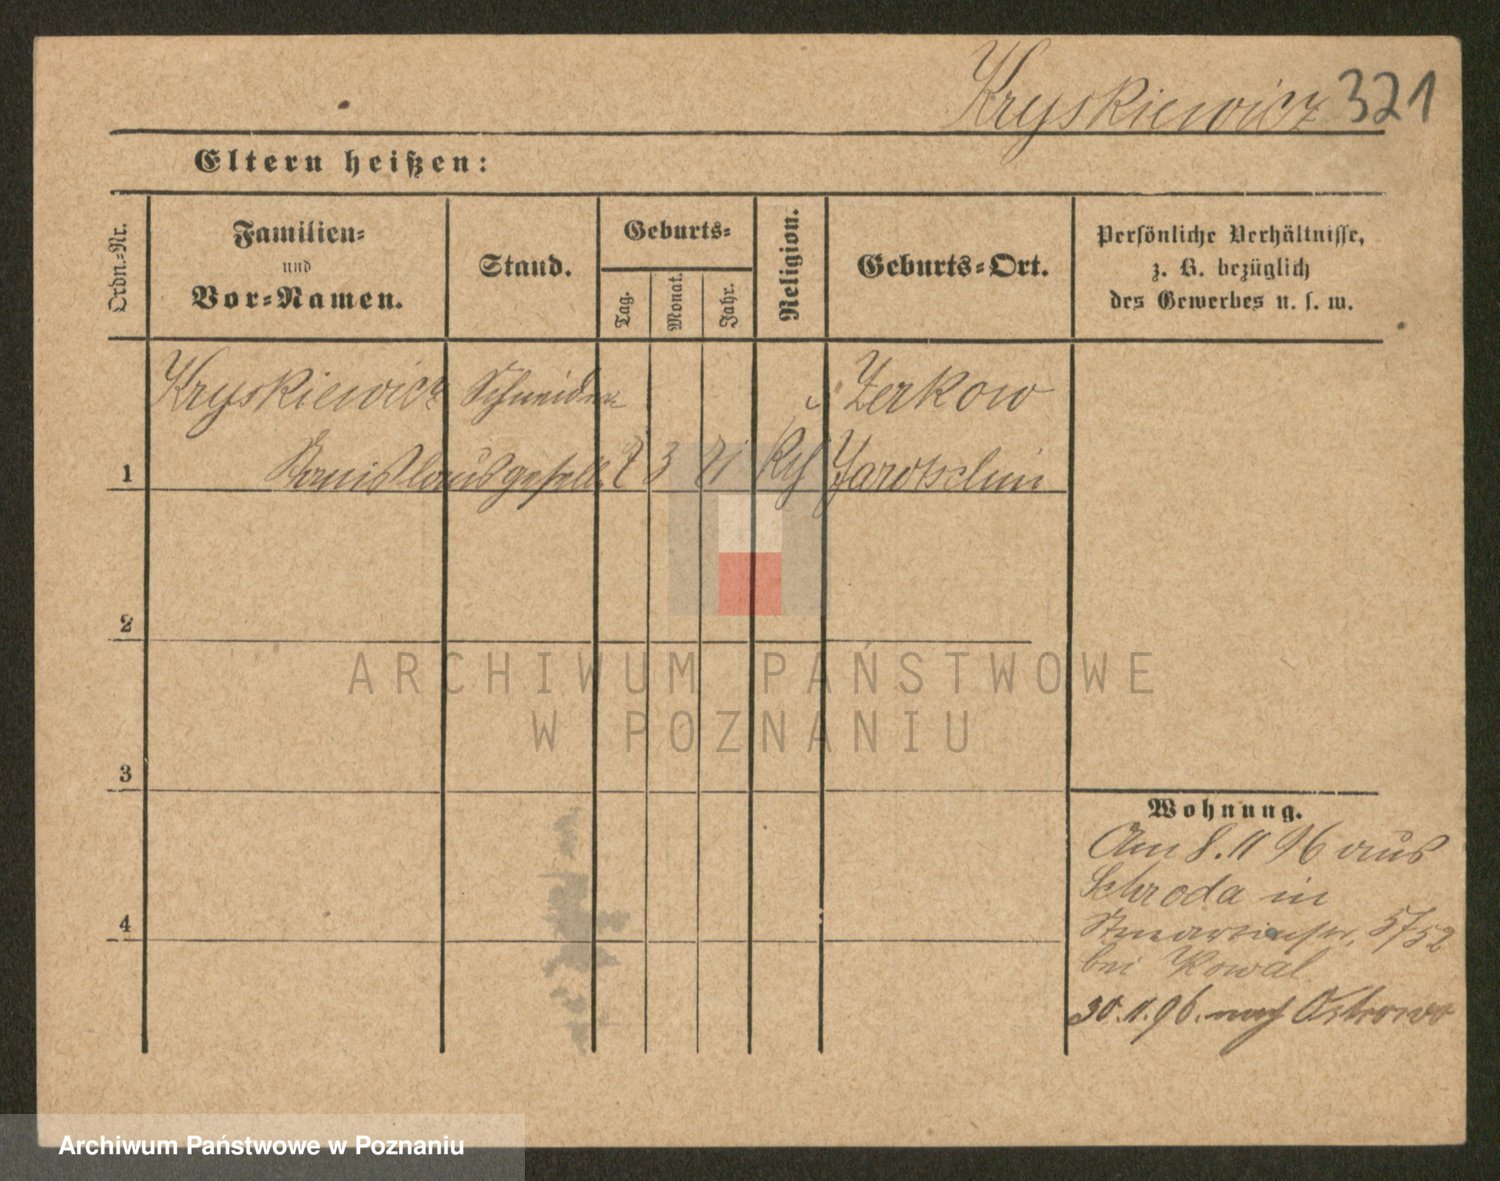 Kryskiewicz 321
Eltern heißen:
Ordn.-Nr.
Familien-
und
Vor-Namen.
Stand.
Geburts-
Tag.
Monat.
Jahr.
Religion.
Geburts-Ort.
Persönliche Verhältnisse,
z. B. bezüglich
des Gewerbes u. s. w.
Kryskiewicz Schneider Zerkow
1 Stanislaus gesell 3 Kth Jarotschin
2
3
4
Wohnung.
Am 8.11 96 aus
Schroda in
Stmartinstr. 5/52
bei Kowal
30.11.96. nach Ostrowo
ARCHIWUM PAŃSTWOWE
W POZNANIU
Archiwum Państwowe w Poznaniu